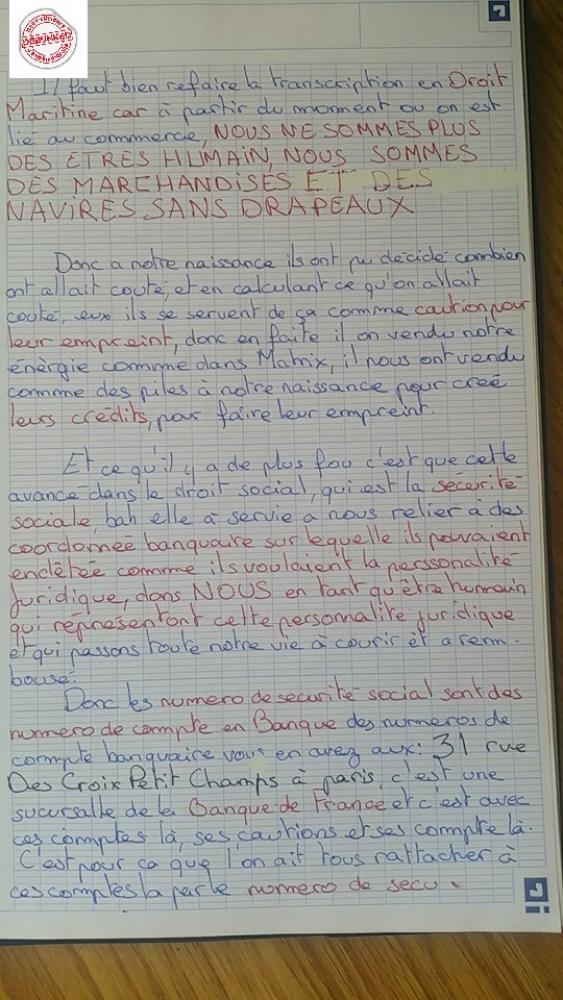 Il faut bien refaire la transcription en Droit
Maritine car à partir du moment ou on est
lié au commerce, NOUS NE SOMMES PLUS
DES ETRES HUMAIN, NOUS SOMMES
DES MARCHANDISES ET DES
NAVIRES SANS DRAPEAUX
Donc a notre naissance ils ont pu décidé combien
ont allait couté, et en calculant ce qu'on allait
couté, eux ils se servent de ça comme caution pour
leur empreint, donc en faite il on vendu notre
énergie comme dans Matrix, il nous ont vendu
comme des piles à notre naissance pour creé
leurs crédits, pour faire leur empreint.
Et ce qu'il y a de plus fou c'est que cette
avance dans le droit social, qui est la sécurité
sociale, bah elle à servie a nous relier à des
coordonneé banquaire sur lequelle ils pouvaient
endétée comme ils voulaient la perssonalité
juridique, dans NOUS en tant qu'être humain
qui représentont cette personnalité juridique
et qui passons toute notre vie à courir et a rem-
boussé.
Donc les numero de securité social sont des
numero de compte en Banque des numeros de
compte banquaire vous en avez aux: 31 rue
Des Croix Petit Champs à paris, c'est une
sucursalle de la Banque de France et c'est avec
ces comptes là, ses cautions et ses compte là.
C'est pour ça que l'on ait tous rattacher à
ces comptes la par le numero de secu.